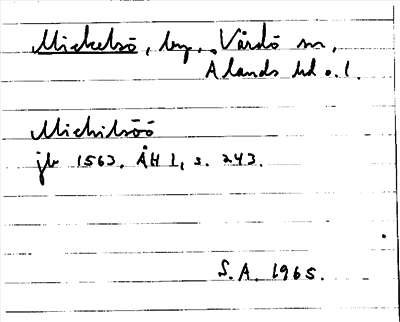 Mickelsö, by, Vårdö sn,
Ålands hd o. l.
Michilsöö
jb 1563. ÅH 1, s. 243.
S.A. 1965.